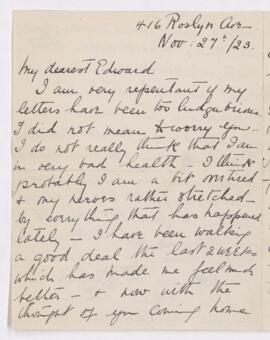 416 Roslyn Ave
Nov: 27th/23.
My dearest Edward
I am very repentant if my
letters have been too lugubrious.
I did not mean to worry you.
I do not really think that I am
in very bad health - I think
probably I am a bit overtired
& my nerves rather stretched
by everything that has happened
lately - I have been walking
a good deal the last 2 weeks
which has made me feel much
better - & now with the
thought of you coming home